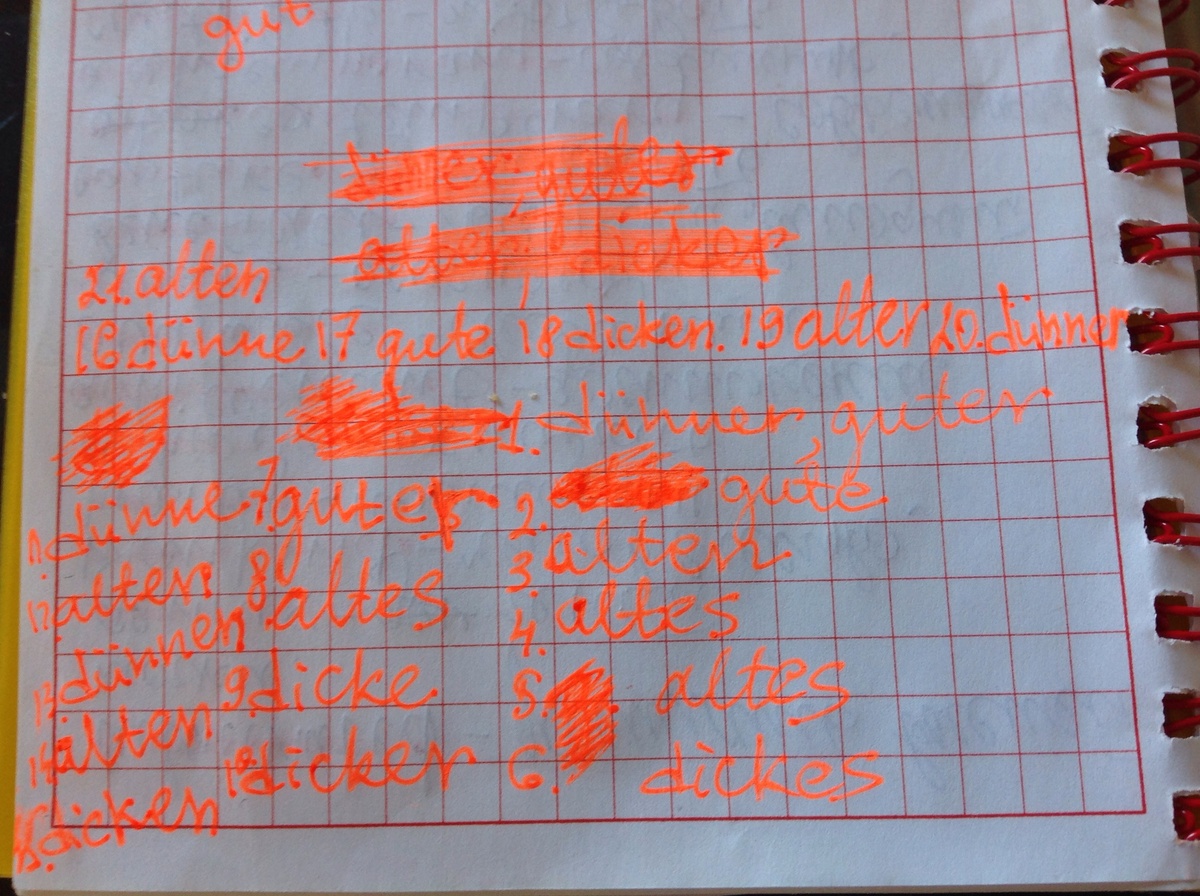 gut
21. alten
16 dünne 17 gute 18 dicken. 19 alter 20. dünner
1. dünner, guter
11. dünne 7. guter 2. gute
12. alten 8. altes 3. alten
13 dünnen 4. altes
14 alten 9. dicke 5. altes
15. dicken 10. dicker 6. dickes